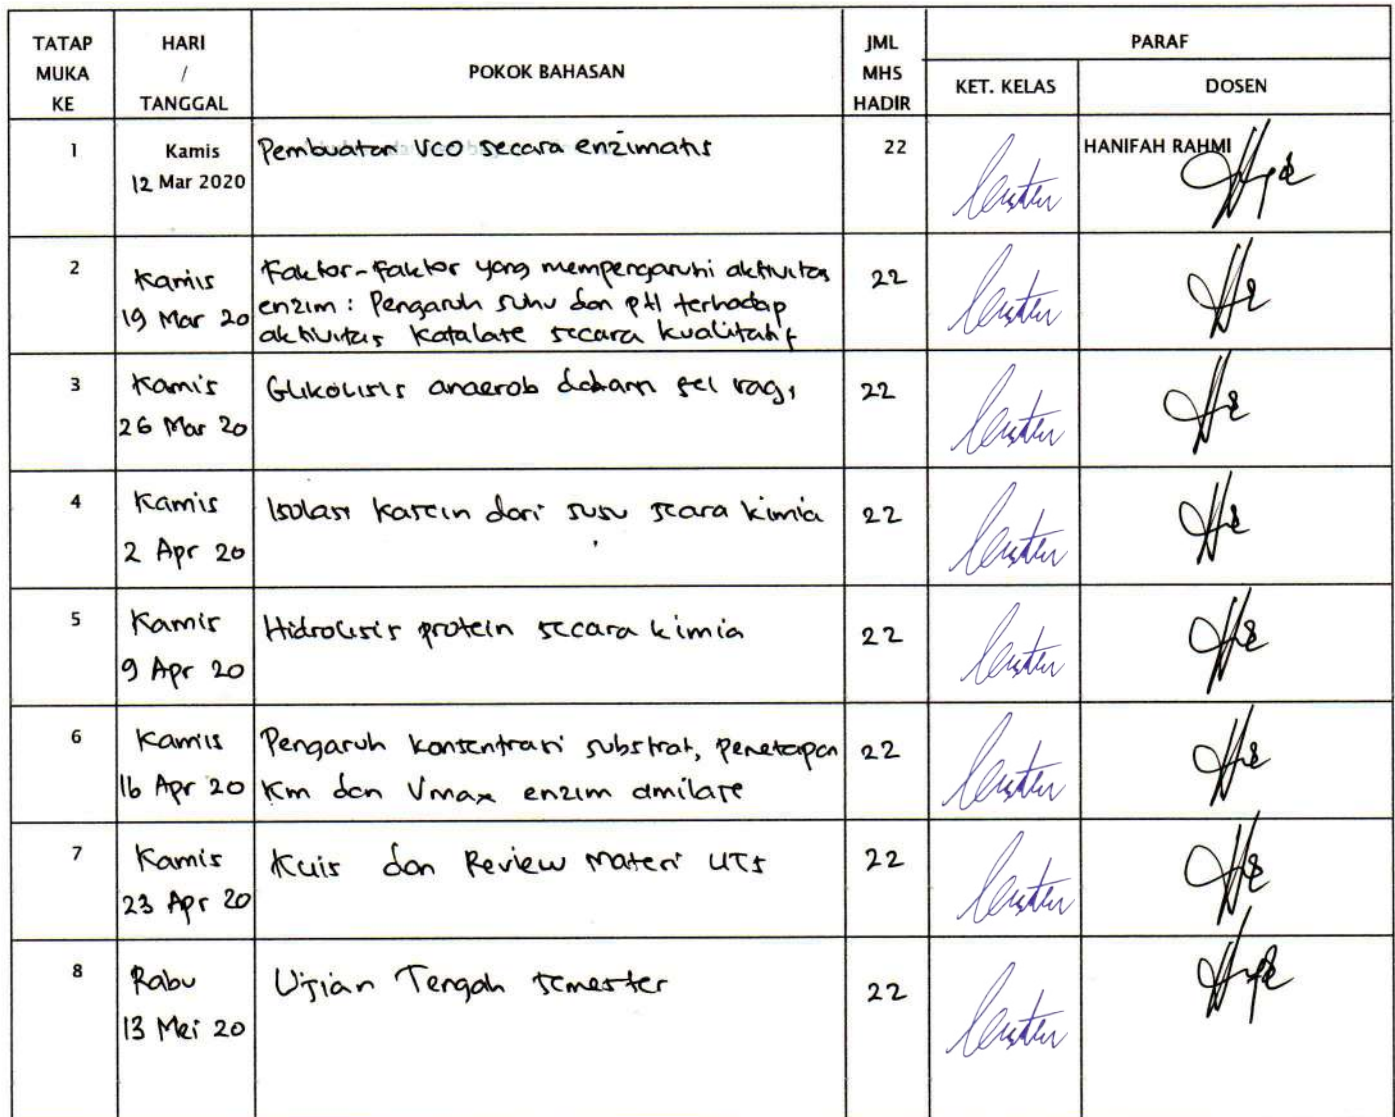 TATAP MUKA KE
HARI / TANGGAL
POKOK BAHASAN
JML MHS HADIR
PARAF
KET. KELAS
DOSEN
1
Kamis
12 Mar 2020
Pembuatan VCO secara enzimatis
22
HANIFAH RAHMI
2
Kamis
19 Mar 20
Faktor-faktor yang mempengaruhi aktivitas
enzim : Pengaruh suhu dan pH terhadap
aktivitas katalase secara kualitatif
22
3
Kamis
26 Mar 20
Glikolisis anaerob dalam sel ragi
22
4
Kamis
2 Apr 20
Isolasi kasein dari susu scara kimia
22
5
Kamis
9 Apr 20
Hidrolisis protein secara kimia
22
6
Kamis
16 Apr 20
Pengaruh konsentrasi substrat, penetapan
Km dan Vmax enzim amilase
22
7
Kamis
23 Apr 20
Kuis dan Review Materi UTS
22
8
Rabu
13 Mei 20
Ujian Tengah Semester
22